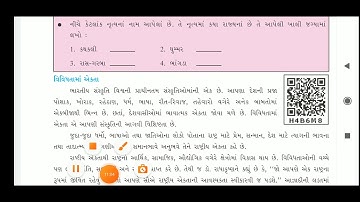 નીચે કેટલાંક નૃત્યનાં નામ આપેલાં છે. તે નૃત્યમાં કયા રાજ્યનાં છે તે આપેલી ખાલી જગ્યામાં
લખો :
1. કથકલી ________ 2. ઘુમ્મર ________
3. રાસ-ગરબા ________ 4. ભાંગડા ________
વિવિધતામાં એકતા
ભારતીય સંસ્કૃતિ વિશ્વની પ્રાચીનતમ સંસ્કૃતિઓમાંની એક છે. આપણા દેશની પ્રજા
પોશાક, ખોરાક, રહેઠાણ, ધર્મ, ભાષા, રીત-રિવાજ, તહેવારો વગેરે અનેક બાબતોમાં
એકબીજાથી ભિન્ન છે. છતાં, દેશવાસીઓમાં ભાવાત્મક એકતા જોવા મળે છે. વિવિધતામાં
એકતા એ આપણી સંસ્કૃતિની આગવી વિશિષ્ટતા છે.
H4B6M8
જુદા-જુદા ધર્મો, ભાષાઓ તથા જાતિઓના લોકો પોતાના રાષ્ટ્ર માટે પ્રેમ, સન્માન, દેશ માટે ત્યાગની ભાવના
તથા તાદાત્મ્ય સમાનભાવે અનુભવે તેને રાષ્ટ્રીય એકતા કહે છે.
રાષ્ટ્રીય એકતાથી રાષ્ટ્રનો આર્થિક, સામાજિક, ઔદ્યોગિક વગેરે ક્ષેત્રોમાં વિકાસ થાય છે. વિવિધતાઓની વચ્ચે
પણ છે. તેથી જ ડૉ. રાધાકૃષ્ણને કહ્યું છે કે, "જો આપણે એક રાષ્ટ્રના
રૂપમાં જીવિત રહેવું આપણે સૌએ રાષ્ટ્રીય એકતાની આવશ્યકતા સ્વીકારવી જ પડશે." આઝાદીની લડતમાં